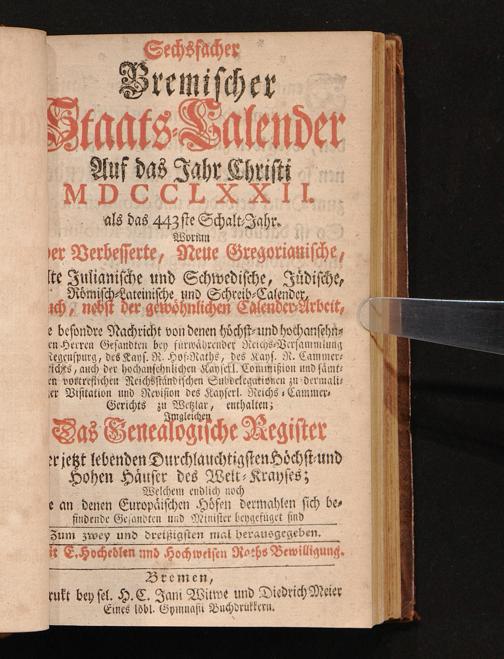 Sechsfacher
Bremischer
Staats-Calender
Auf das Jahr Christi
MDCCLXXII.
als das 443ste Schalt-Jahr.
Worinn
der Verbesserte, Neue Gregorianische,
lte Julianische und Schwedische, Jüdische,
Römisch-Lateinische und Schreib-Calender,
uch, nebst der gewöhnlichen Calender-Arbeit,
e besondre Nachricht von denen höchst- und hochansehn-
en Herren Gesandten bey fürwährender Reichs-Versammlung
Regenspurg, des Kays. R. Hof-Raths, des Kays. R. Cammer-
richts, auch der hochansehnlichen Kayserl. Commission und sämt-
en vortreflichen Reichsständischen Subdelegationen zu dermali-
er Visitation und Revision des Kayserl. Reichs-Cammer-
Gerichts zu Wetzlar, enthalten;
Imgleichen
Das Genealogische Register
er jetzt lebenden Durchlauchtigsten Höchst- und
Hohen Häuser des Welt-Krayses;
Welchem endlich noch
e an denen Europäischen Höfen dermahlen sich be-
findende Gesandten und Minister beygefüget sind
Zum zwey und dreißigsten mal herausgegeben.
it E. Hochedlen und Hochweisen Raths Bewilligung.
Bremen,
rukt bey sel. H. C. Jani Witwe und Diedrich Meier
Eines löbl. Gymnasii Buchdrükkern.